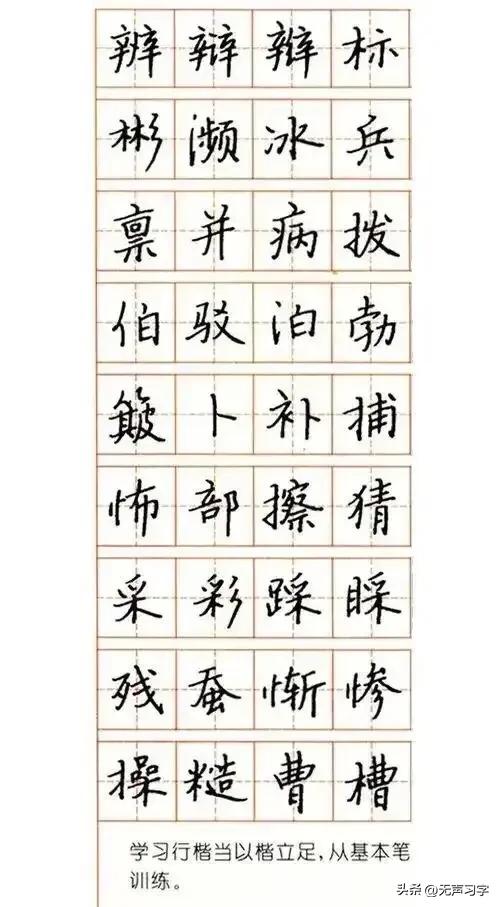 辨辩辫标
彬濒冰兵
禀并病拨
伯驳泊勃
簸卜补捕
怖部擦猜
采彩踩睬
残蚕惭惨
操糙曹槽
学习行楷当以楷立足，从基本笔
训练。
头条 @无声习字